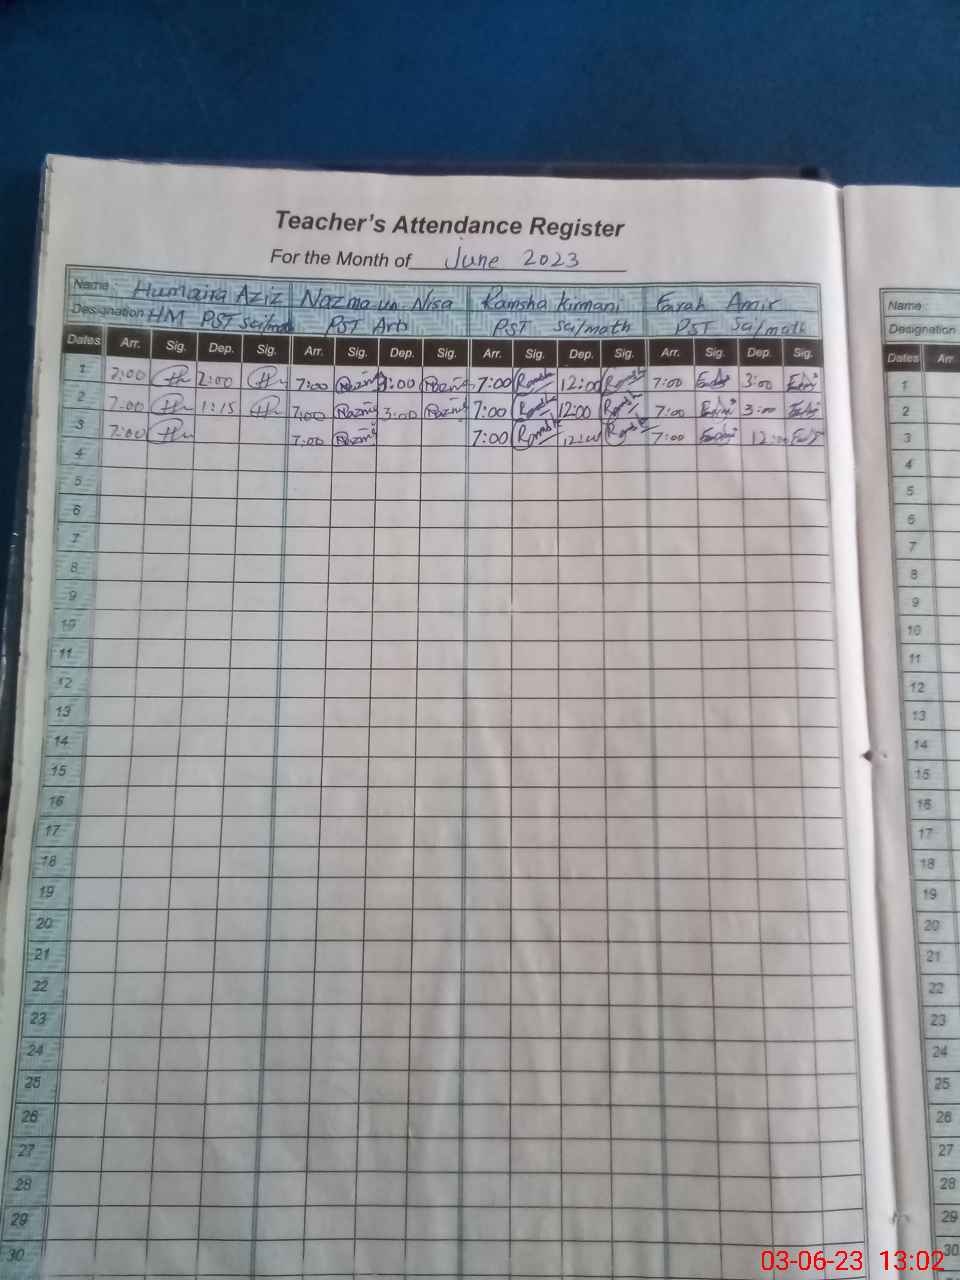 Teacher's Attendance Register
For the Month of June 2023
Name: Humaira Aziz Nazma un Nisa Ramsha Kirmani Farah Amir
Designation HM PST sci/math PST Arts PST sci/math PST Sci/math
Dates Arr. Sig. Dep. Sig. Arr. Sig. Dep. Sig. Arr. Sig. Dep. Sig. Arr. Sig. Dep. Sig.
1 7:00 2:00 7:00 3:00 7:00 Ramsha 12:00 Ramsha 7:00 3:00
2 7:00 1:15 7:00 3:00 7:00 Ramsha 12:00 Ramsha 7:00 3:00
3 7:00 7:00 7:00 Ramsha 12:00 Ramsha 7:00 12:00
4
5
6
7
8
9
10
11
12
13
14
15
16
17
18
19
20
21
22
23
24
25
26
27
28
29
30
Name:
Designation
Dates Arr
1
2
3
4
5
6
7
8
9
10
11
12
13
14
15
16
17
18
19
20
21
22
23
24
25
26
27
28
29
30
03-06-23 13:02